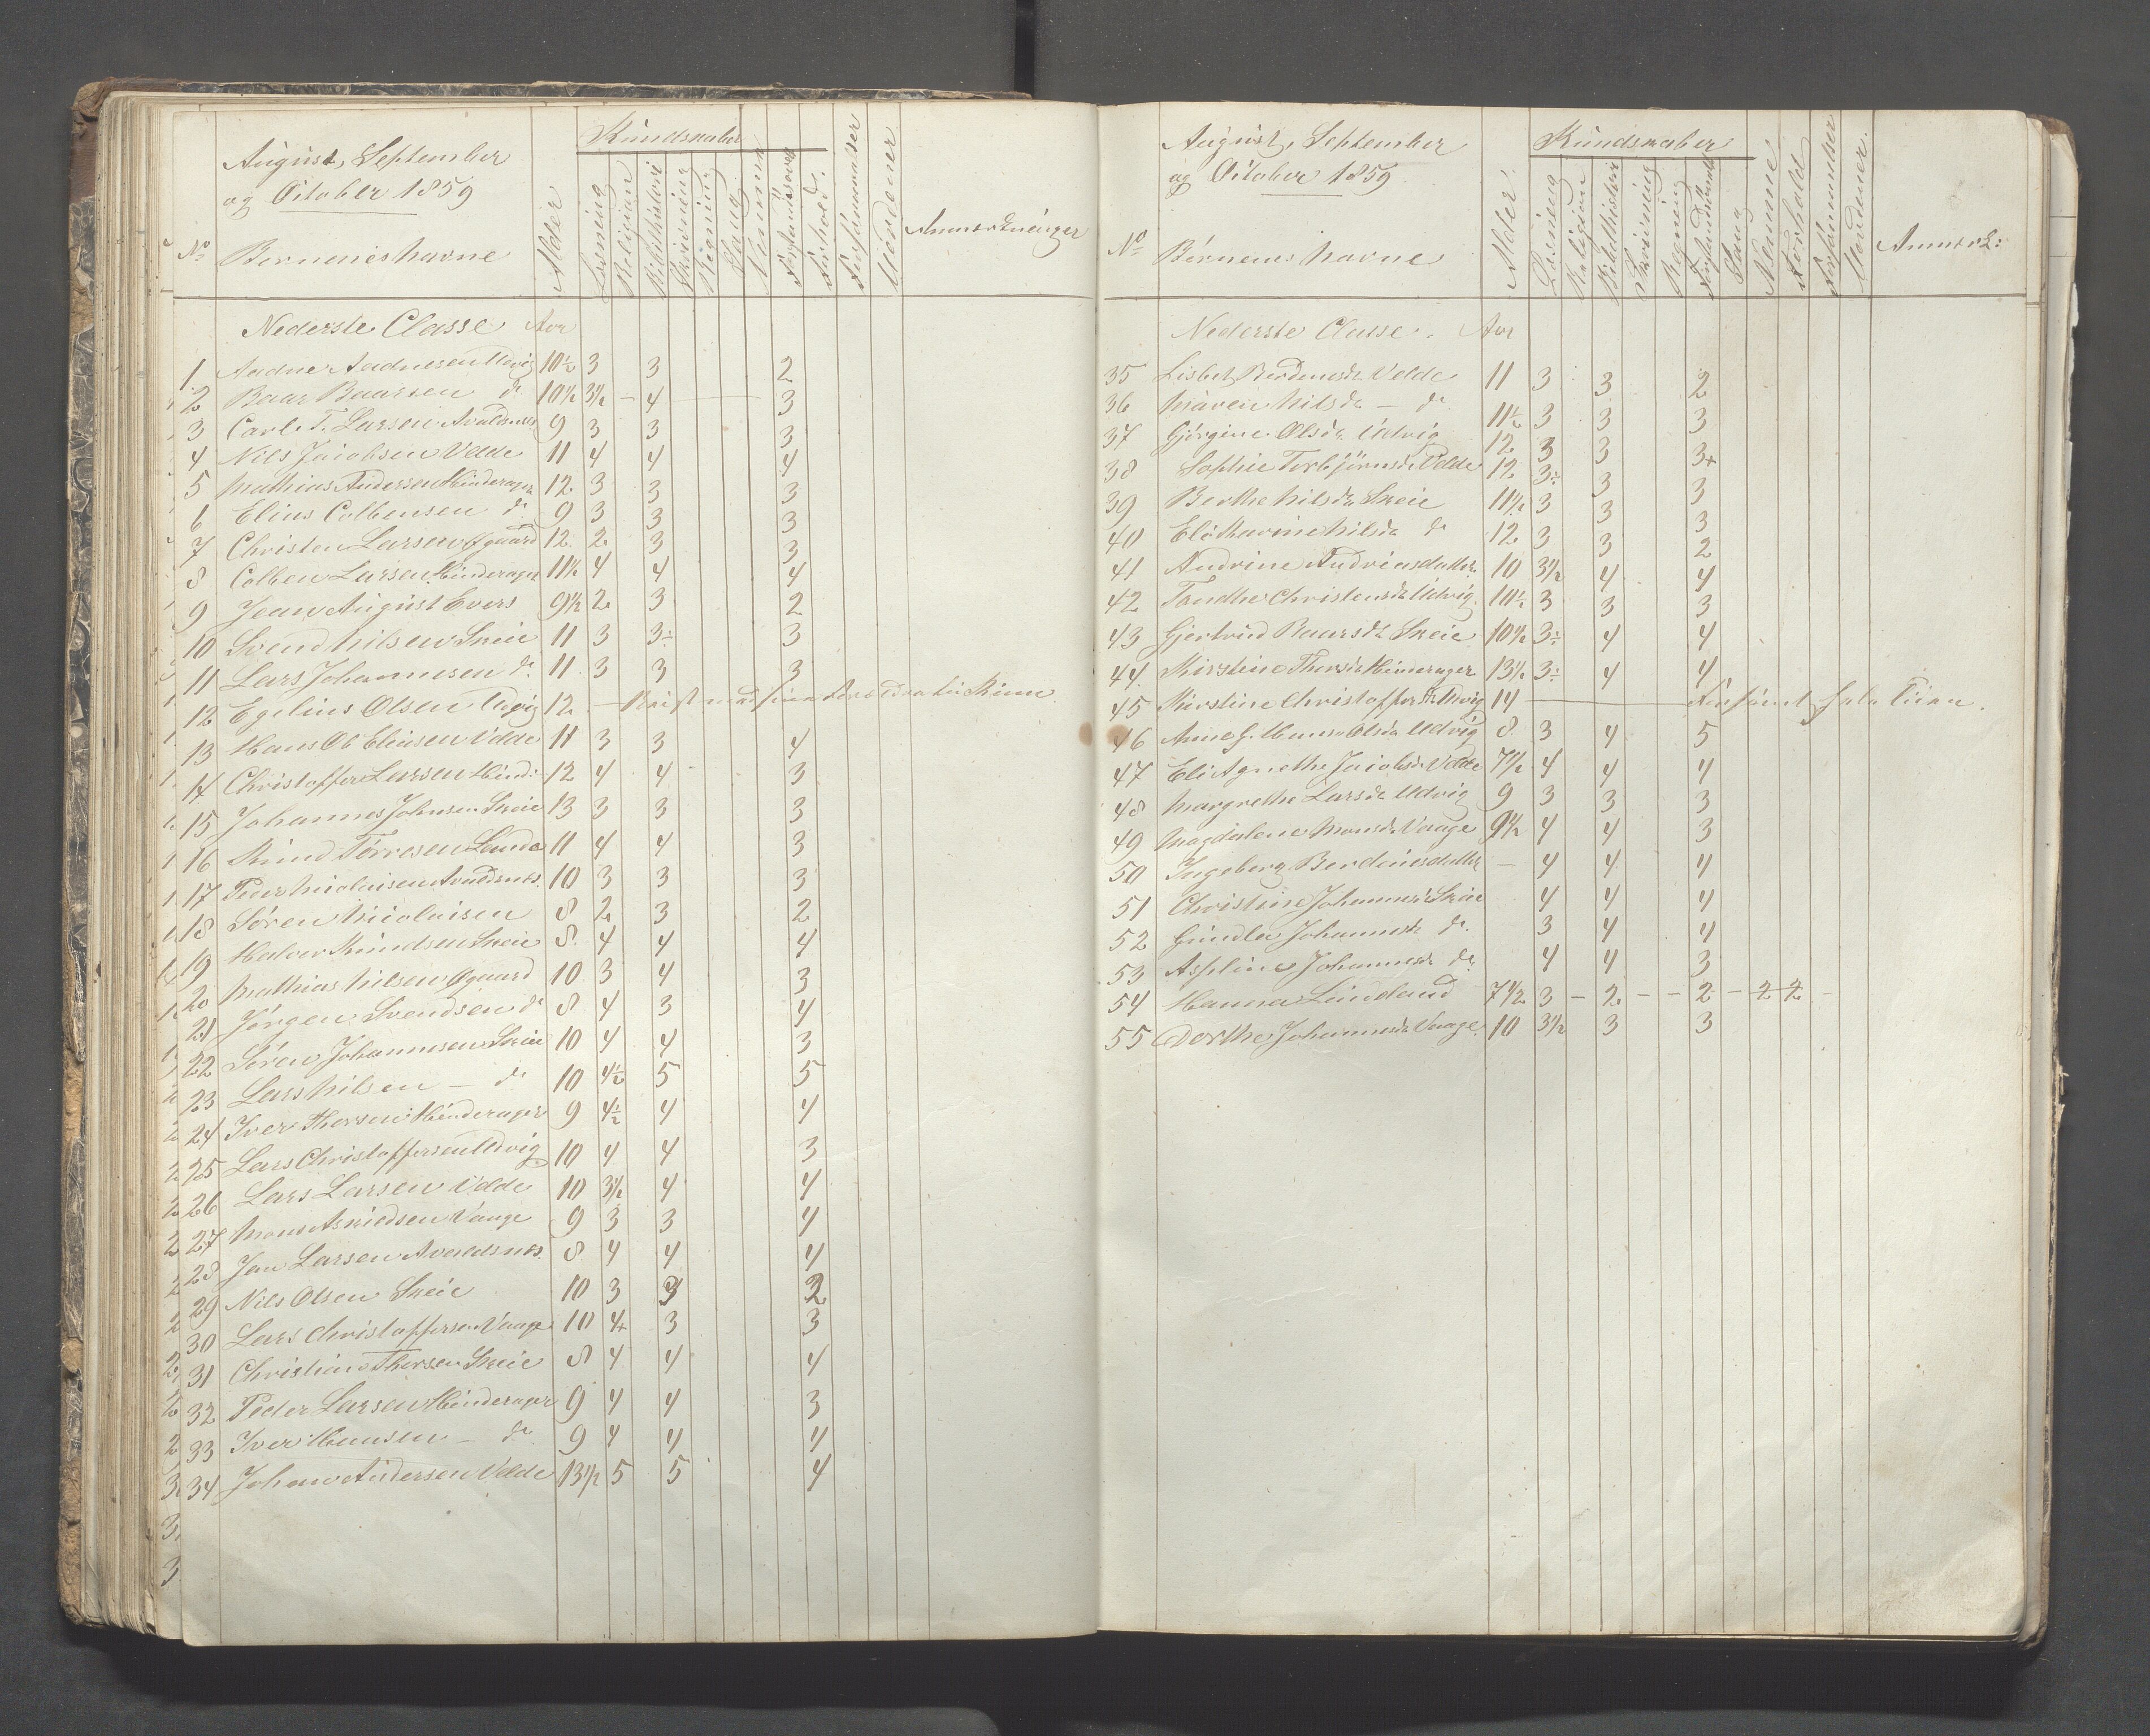 August, September
og October 1859
Kundskaber
No Børnenes Navne Alder Læsning Religion Bibelhistorie Skrivning Regning Sang Nemme Forstandsøvel Forhold Forsømmelser Anmærkninger
Nederste Classe Aar
1. Aadne Aadnesen Utvig 10½ 3 3 2
2 Baar Baarsen do 10½ 3½ – 4 3
3 Carl T. Larsen Avaldsnes 9 3 3 3
4 Nils Jacobsen Velde 11 4 4 4
5 Mathias Andersen Hinderager 12 3 3 3
6 Elius Colbensen do 9 3 3 3
7 Christen Larsen Øgaard 12 2 3 3
8 Colben Larsen Hinderager 11½ 4 4 4
9 Jean August Evers 9½ 2 3 2
10 Svend Nilsen Skeie 11 3 3÷ 3
11 Lars Johannesen do 11 3 3 3
12 Egelius Olsen Utvig 12 – Reist med sine
13 Hans Ob Eliasen Velde 11 3 3 4
14 Christoffer Larsen Hind: 12 4 4 3
15 Johannes Johnsen Skeie 13 3 3 3
16 Knud Torresen Lande 11 4 4 3
17 Peder Nicolaisen Avaldsnes 10 3 3 3
18 Sören Nicolaisen 8 2 3 2
19 Halvor Knudsen Skeie 8 4 4 4
20 Mathias Nilsen Øgaard 10 3 4 3
21 Jørgen Svendsen do 8 4 3 4
22 Sören Johannesen Skeie 10 4 4 3
23 Lars Nilsen – do 10 4½ 5 5
24 Iver Thorsen Hinderager 9 4½ 4 4
25 Lars Christoffersen Utvig 10 4 4 3
26 Lars Larsen Velde 10 3½ 4 4
27 Mons Asriedsen Vaage 9 3 3 4
28 Jan Larsen Avaldsnes 8 4 4 4
29 Nils Olsen Skeie 10 3 3 2
30 Lars Christoffersen Vaage 10 4+ 3 3
31 Christian Thorsen Skeie 8 4 4 4
32 Peder Larsen Hinderager 9 4 4 3
33 Iver Hansen – do 9 4 4 4
34 Johan Andersen Velde 13½ 5 5 4
August, September
og October 1859
Kundskaber
No Børnenes Navne Alder Læsning Religion Bibelhistorie Skrivning Regning Sang Nemme Forhold Forsømmelser Anmærk:
Nederste Classe. Aar
35 Lisbet Berdinesdr Velde 11 3 3 2
36 Maren Nilsdr – do 11½ 3 3 3
37 Gjørgine Olsdr Utvig 12 3 3 3+
38 Sophie Torbjörnsdr Velde 12 3÷ 3 3
39 Berthe Nilsdr Skeie 11½ 3 3 3
40 Nilsdr do 12 3 3 2
41 Andrine Andriasdatter 10 3½ 4 4
42 Tandhe Christensdr Utvig 10½ 3 3 3
43 Gjertrud Baarsdr Skeie 10½ 3÷ 4 4
44. Kirstine Thorsdr Hinderager 13½ 3÷ 4 4
45 Kirstine Christoffersdr Utvig 14 – Forsömt hele Tiden.
46 Anne G. Olsdr Utvig 8 3 4 5
47 Eli Agnethe Jacobsdr Velde 7½ 4 4 4
48 Margrethe Larsdr Utvig 9 3 3 3
49 Magdalene Monsdr Vaage 9½ 4 4 3
50 Ingeborg Berdinesdatter – 4 4 4
51 Christine Johannesdr Skeie 4 4 4
52 Gundla Johannesdr do 3 4 4
53 Aspline Johannesdr do 4 4 3
54 Hanna Lindland 7½ 3 – 2 – – 2 – 2 2
55 Dorthe Johannesdr Vaage 10 3½ 3 3